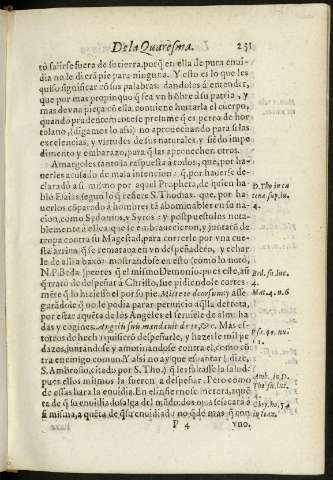 De la Quaresma. 231
tò salirse fuera de su tierra, porq̃ en ella de pura enui-
dia no le dierã pie para ninguna. Y esto es lo que les
quiso significar cõ sus palabras: dandolos à entender,
que por mas propinquo q̃ sea vn hõbre a su patria, y
mas de vna pieça cõ ella, conviene hurtarle el cuerpo,
quando prudentemente se presume q̃ es perro de hor-
telano, (digamoslo assi) no aprouechando para si las
excelencias, y virtudes de sus naturales, y siẽdo impe
dimento y embarazo, para q̃ las aprouechen otros.
Amargoles tanto la respuesta à todos; que, por ha-
uerles acusado de mala intencion: q̃, por hauerse de-
clarado a si mismo por aquel Propheta, de quien ha
blò Esaias segun lo q̃ refiere S. Thomas: que, por ha
uerlos cõparado à hombres tã abominables en su na
cion, como Sydonios, y Syros: y pospuestolos nota-
blemente à ellos que se embrauecieron, y juntarõ de
tropa contra su Magestad, para correrle por vna cue-
sta arriba, q̃ se remataua en vn despeñadero, y echar-
le de alli a baxo: mostrandose en esto (como lo notò,
N.P. Beda) peores q̃ el mismo Demonio: pues este, aũ
q̃ tratò de despeñar à Christo, fue pidiendole cortes-
mẽte q̃ lo hiziesse el por su pie. Mitte te deorsum: y asse-
garãdole q̃ no le podia parar perjuicio aq̃lla derrota,
por estar aquẽta de los Angeles el seruirle de almoha
das y coxines. Angelis suis mandauit de te, &c. Mas es-
totros de hecho quisierõ despeñarle, y hazerle mil pe
dazos, juntandose y amotinandose contra el, como cõ
tra enemigo comun. Y assi no ay que espantar (dize,
S. Ambrosio, citado por S. Tho.) q̃ les faltasse la salud:
pues ellos mismos la fueron a despeñar. Pero como
de essas hara la enuidia. En el infierno se meterà, aquẽ
te de q̃ su enuidiado salga del mũdo: dos ojos se sacarà à
si misma, a quẽta de q̃ su enuidiado no quede mas q̃ con
P 4 vno,
D. Tho in ca
tena sup. lu.
4.
Bed. sũ. luc.
4.
Mat. 4. n. 6
Psal. 90. nu.
11.
Amb. in D.
Tho. sũ. luc.
4.